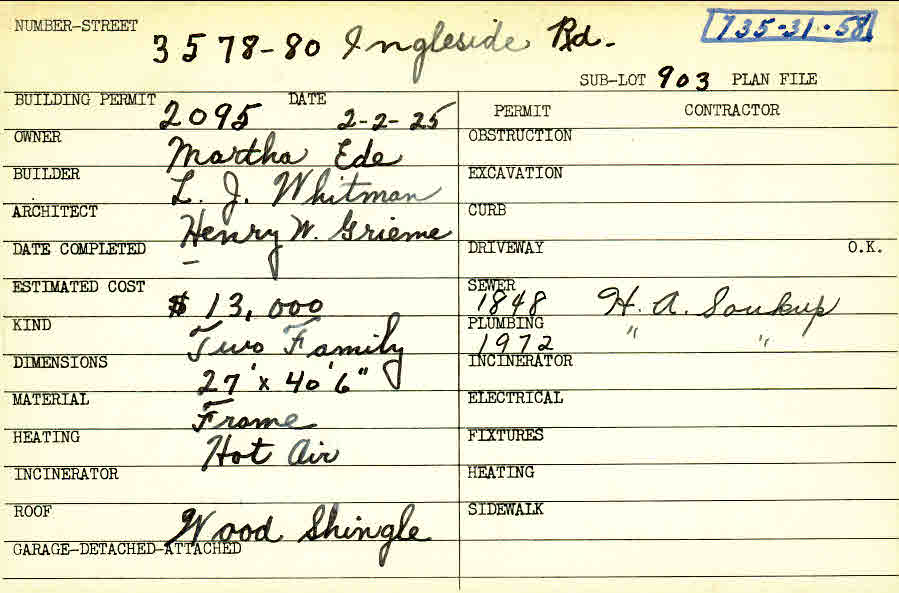 NUMBER-STREET 3578-80 Ingleside Rd. 735-31-58
SUB-LOT 903 PLAN FILE
BUILDING PERMIT 2095 DATE 2-2-25
OWNER Martha Ede
BUILDER L. J. Whitman
ARCHITECT Henry W. Grieme
DATE COMPLETED –
ESTIMATED COST $13,000
KIND Two Family
DIMENSIONS 27' x 40'6"
MATERIAL Frame
HEATING Hot Air
INCINERATOR
ROOF Wood Shingle
GARAGE-DETACHED-ATTACHED
PERMIT CONTRACTOR
OBSTRUCTION
EXCAVATION
CURB
DRIVEWAY O.K.
SEWER 1848 H. A. Soukup
PLUMBING 1972 " "
INCINERATOR
ELECTRICAL
FIXTURES
HEATING
SIDEWALK